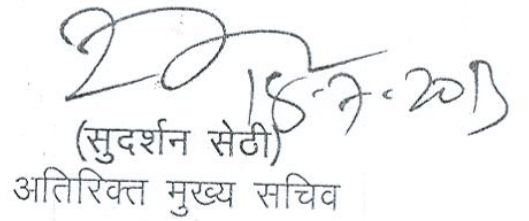 18-7-2013
(सुदर्शन सेठी)
अतिरिक्त मुख्य सचिव